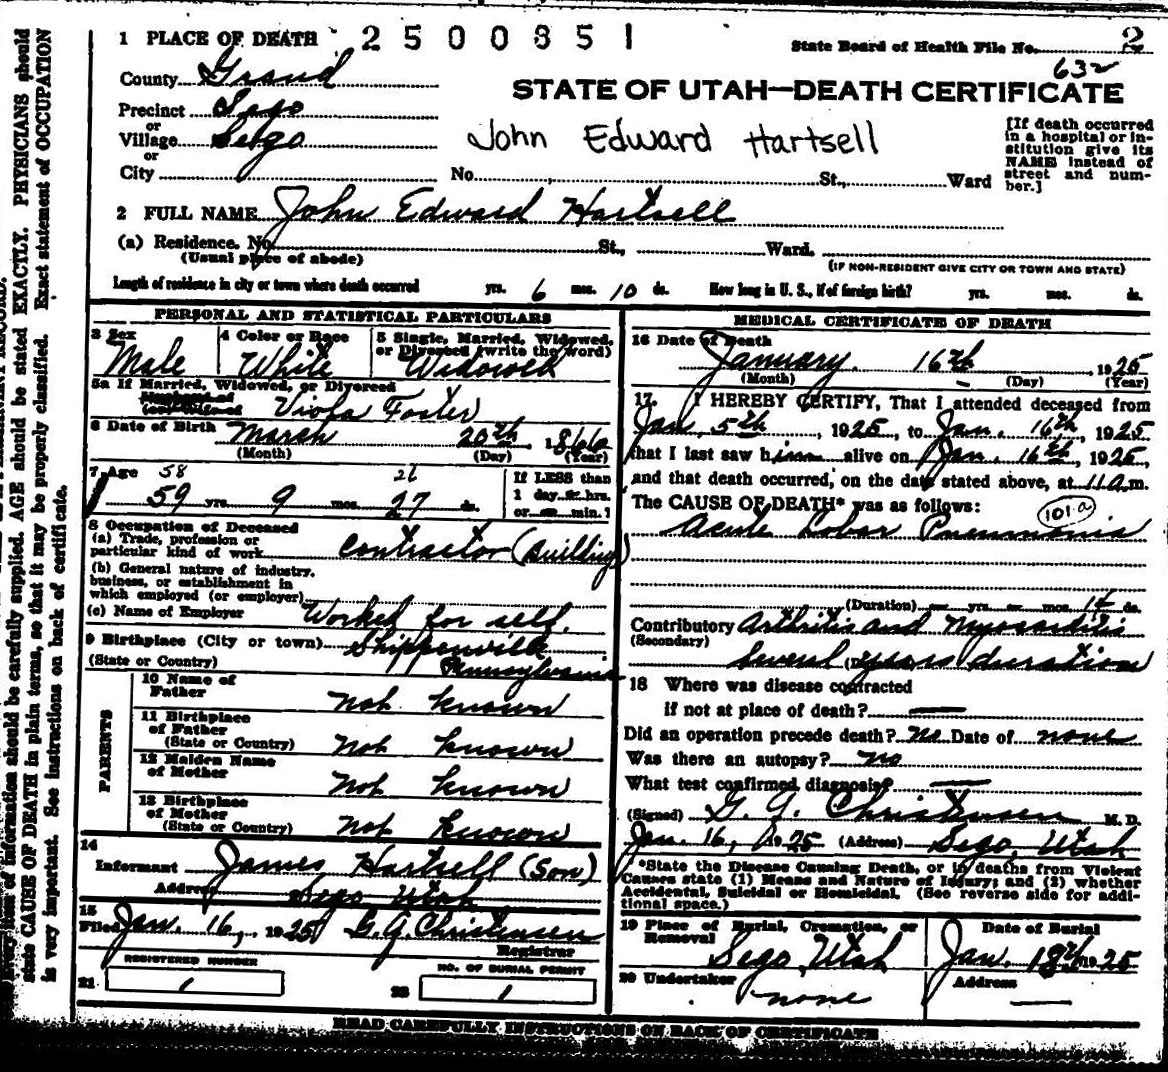 1 PLACE OF DEATH 2500851 State Board of Health File No. 2
County Grand 632
STATE OF UTAH—DEATH CERTIFICATE
Precinct Sego
or
Village Sego John Edward Hartsell
or
City No. St., Ward
[If death occurred
in a hospital or in-
stitution give its
NAME instead of
street and num-
ber.]
2 FULL NAME John Edward Hartsell
(a) Residence. No. St., Ward.
(Usual place of abode) (IF NON-RESIDENT GIVE CITY OR TOWN AND STATE)
Length of residence in city or town where death occurred yrs. 6 mos. 10 ds. How long in U. S., if of foreign birth? yrs. mos. ds.
PERSONAL AND STATISTICAL PARTICULARS
3 Sex 4 Color or Race 5 Single, Married, Widowed,
or Divorced (write the word)
Male White Widowed
5a If Married, Widowed, or Divorced
Husband of
(or) Wife of Viola Foster
6 Date of Birth March 20th 1866
(Month) (Day) (Year)
7 Age 58 26
59 yrs. 9 mos. 27 ds.
If LESS than
1 day hrs.
or min.?
8 Occupation of Deceased
(a) Trade, profession or
particular kind of work Contractor (Building)
(b) General nature of industry,
business, or establishment in
which employed (or employer)
(c) Name of Employer Worked for self.
9 Birthplace (City or town) Shippenville
(State or Country) Pennsylvania
PARENTS
10 Name of
Father Not known
11 Birthplace
of Father
(State or Country) Not known
12 Maiden Name
of Mother Not known
13 Birthplace
of Mother
(State or Country) Not known
14
Informant James Hartsell (Son)
Address Sego Utah
15
Filed Jan. 16, 1925 G. G. Christensen
Registrar
REGISTERED NUMBER NO. OF BURIAL PERMIT
21 1 22 1
MEDICAL CERTIFICATE OF DEATH
16 Date of Death
January 16th, 1925
(Month) (Day) (Year)
17. I HEREBY CERTIFY, That I attended deceased from
Jan. 5th, 1925, to Jan. 16th, 1925
that I last saw him alive on Jan. 16th, 1925,
and that death occurred, on the date stated above, at 11 a.m.
The CAUSE OF DEATH* was as follows: 101a
Acute Lobar Pneumonia
(Duration) — yrs. — mos. 14 ds.
Contributory Arthritis and Myocarditis
(Secondary) Several years duration
18 Where was disease contracted
if not at place of death? —
Did an operation precede death? No Date of none
Was there an autopsy? No
What test confirmed diagnosis? —
(Signed) G. G. Christensen M. D.
Jan. 16, 1925 (Address) Sego, Utah
*State the Disease Causing Death, or in deaths from Violent
Causes state (1) Means and Nature of Injury; and (2) whether
Accidental, Suicidal or Homicidal. (See reverse side for addi-
tional space.)
19 Place of Burial, Cremation, or
Removal Date of Burial
Sego, Utah Jan. 18th 1925
20 Undertaker Address
none —
READ CAREFULLY INSTRUCTIONS ON BACK OF CERTIFICATE
information should be carefully supplied. AGE should be stated EXACTLY. PHYSICIANS should
state CAUSE OF DEATH in plain terms, so that it may be properly classified. Exact statement of OCCUPATION
is very important. See instructions on back of certificate.